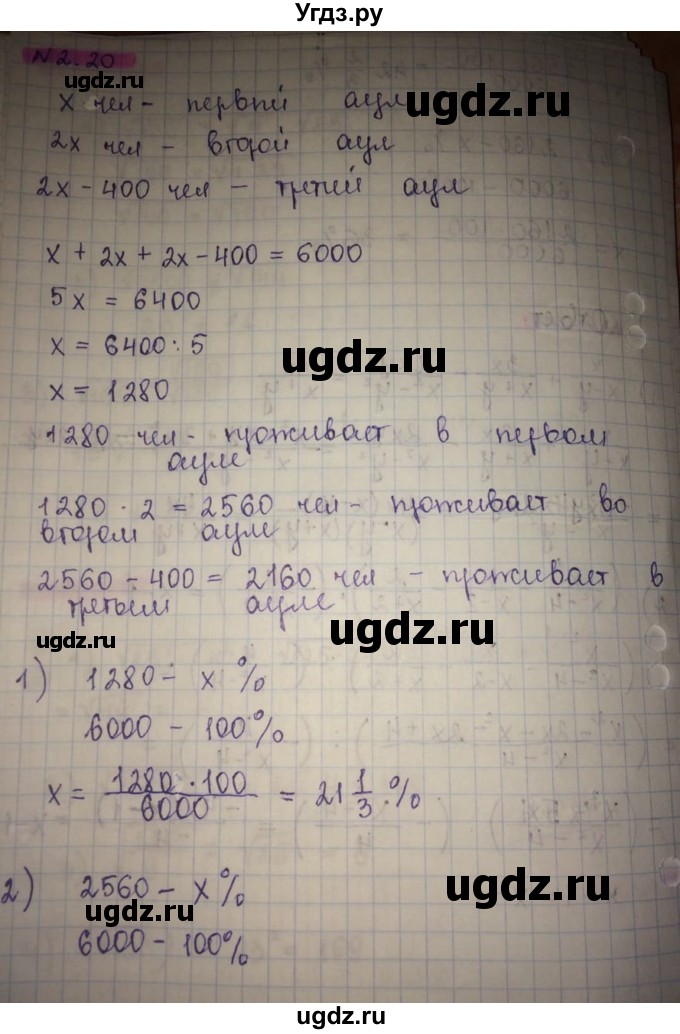 Угдз.ру
N 2.20
x чел - первый аул
ugdz.ru
2x чел - второй аул
2x - 400 чел - третий аул
x + 2x + 2x - 400 = 6000
5x = 6400
ugdz.ru
x = 6400 : 5
x = 1280
1280 чел - проживает в первом
ауле
1280 · 2 = 2560 чел - проживает во
ugdz.ru
втором ауле
2560 - 400 = 2160 чел - проживает в
третьем ауле
ugdz.ru
ugdz.ru
1) 1280 - x %
6000 - 100 %
x = 1280 · 100 / 6000 = 21 1/3 %
2) 2560 - x %
ugdz.ru
ugdz.ru
6000 - 100%
ugdz.ru